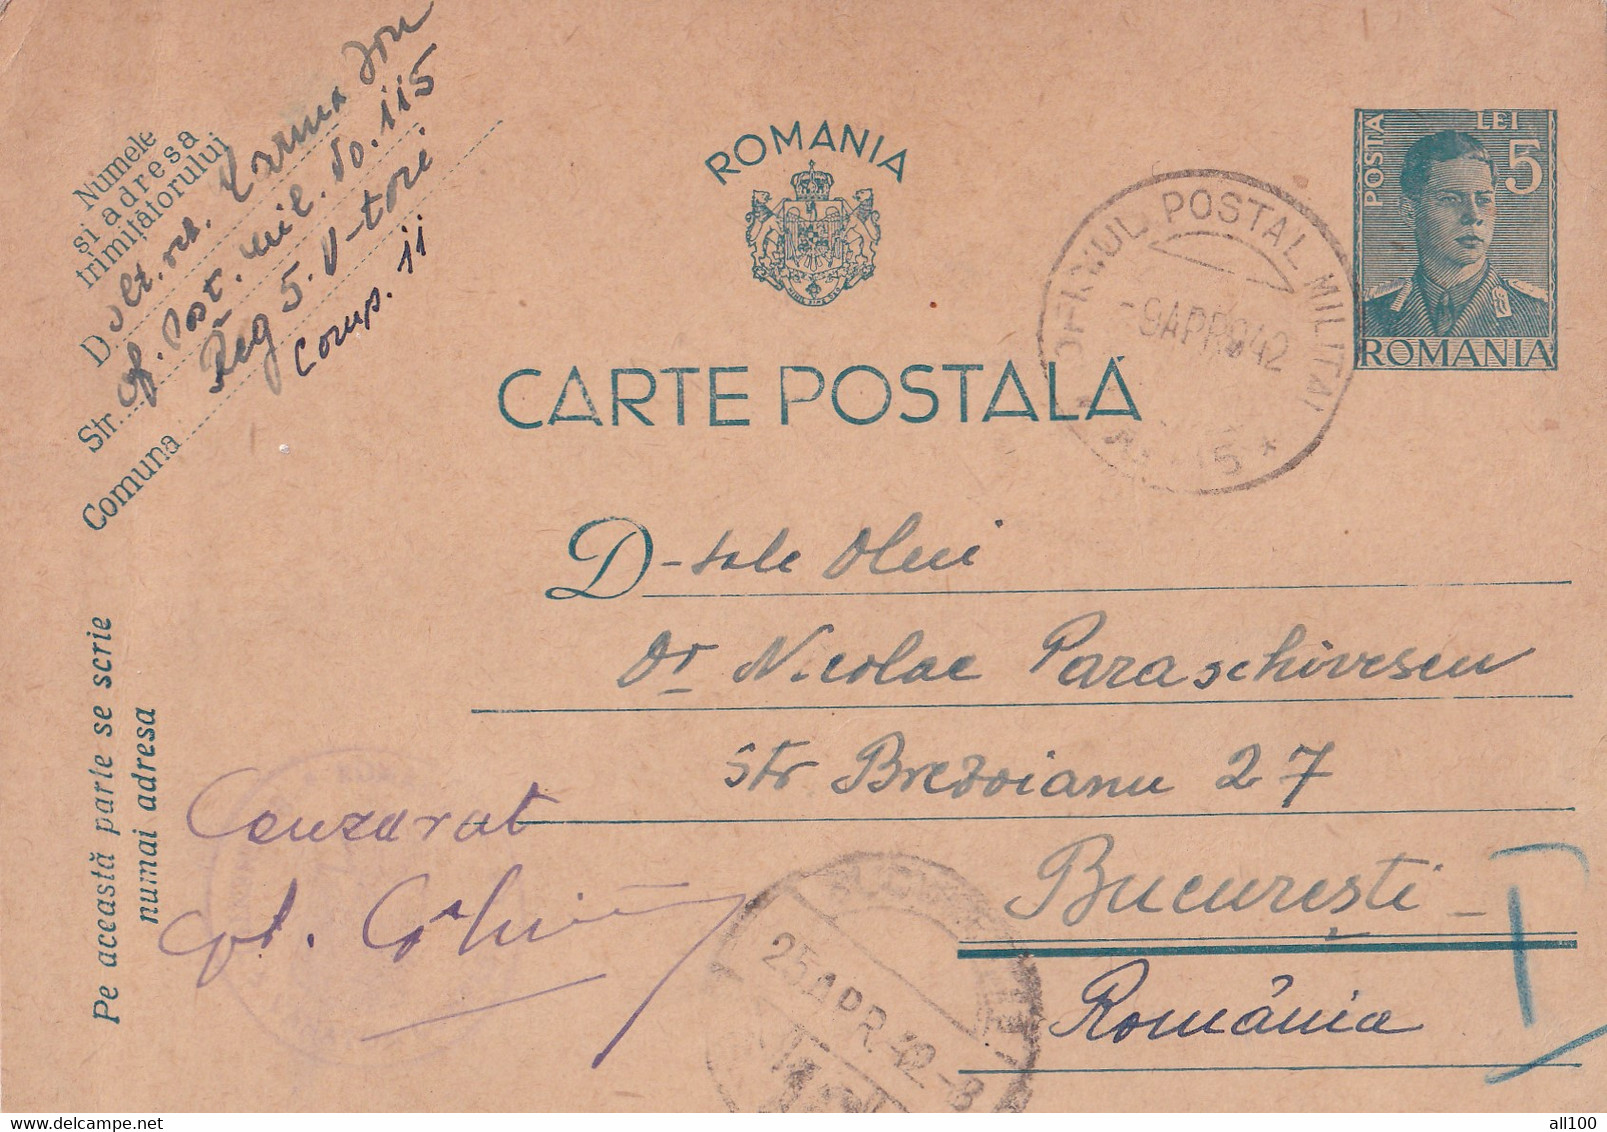 Numele
și adresa
trimițătorului
D
Of. Post. mil. No. 115
Str.
Reg 5. V-tori
Comuna
Comp. 11
ROMANIA
CARTE POSTALĂ
POSTA
LEI 5
ROMANIA
OFICIUL POSTAL MILITAR
-9 APR 942
D-sale
Dr Nicolae Paraschivescu
Str Brezoianu 27
București
România
Pe această parte se scrie
numai adresa
Cenzurat
cpt.
25 APR. 42-8
delcampe.net
all100